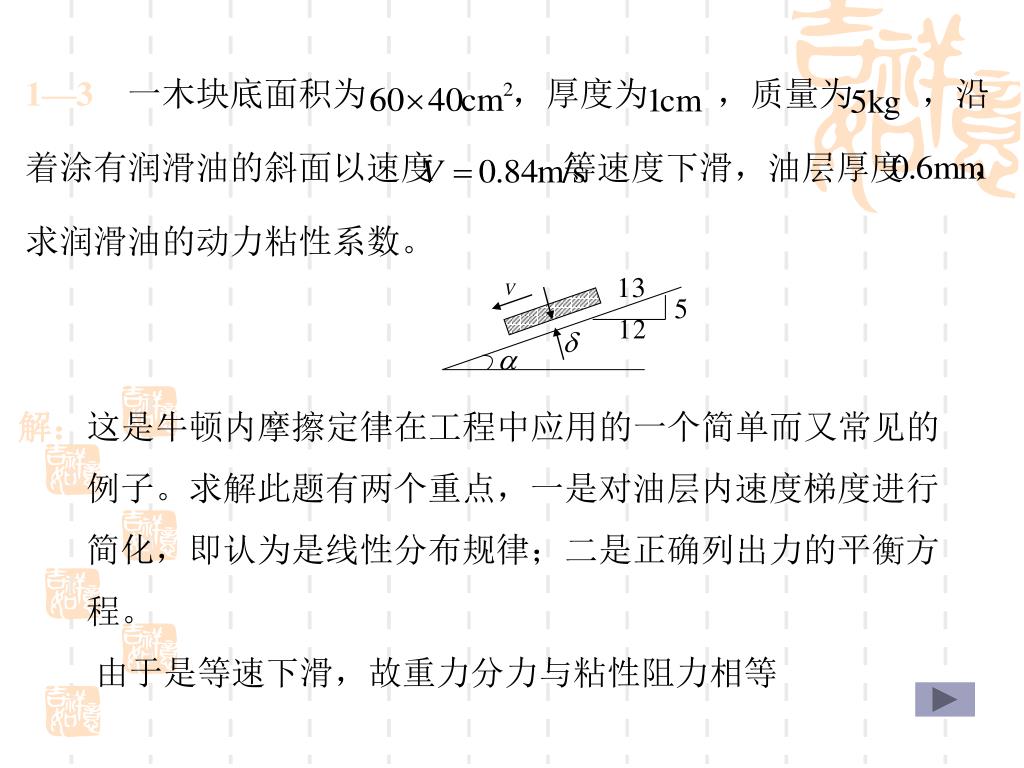 1—3 一木块底面积为60×40cm²，厚度为1cm ，质量为5kg ，沿
着涂有润滑油的斜面以速度V = 0.84m/s等速度下滑，油层厚度0.6mm，
求润滑油的动力粘性系数。
v
13
5
12
δ
α
解：这是牛顿内摩擦定律在工程中应用的一个简单而又常见的
例子。求解此题有两个重点，一是对油层内速度梯度进行
简化，即认为是线性分布规律；二是正确列出力的平衡方
程。
由于是等速下滑，故重力分力与粘性阻力相等
吉祥如意
吉祥如意
吉祥如意
吉祥如意
吉祥如意
吉祥如意
吉祥如意